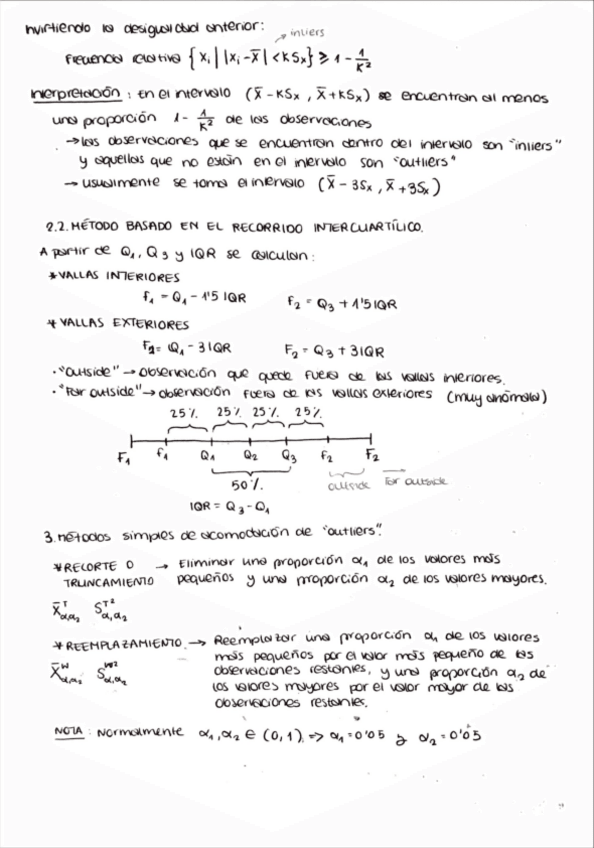 invirtiendo la desigualdad anterior:
→ inliers
Frecuencia relativa { xᵢ | |xᵢ - x̄| < KSₓ } ≥ 1 - 1/K²
Interpretación: En el intervalo (x̄ - KSₓ, x̄ + KSₓ) se encuentran al menos
una proporción 1 - 1/K² de las observaciones
→ las observaciones que se encuentran dentro del intervalo son "inliers"
y aquellas que no están en el intervalo son "outliers"
→ usualmente se toma el intervalo (x̄ - 3Sₓ, x̄ + 3Sₓ)
2.2. MÉTODO BASADO EN EL RECORRIDO INTERCUARTÍLICO.
A partir de Q₁, Q₃ y IQR se calculan:
* VALLAS INTERIORES
f₁ = Q₁ - 1'5 IQR f₂ = Q₃ + 1'5 IQR
* VALLAS EXTERIORES
F₁ = Q₁ - 3 IQR F₂ = Q₃ + 3 IQR
· "outside" → observación que quede fuera de las vallas interiores.
· "Far outside" → observación fuera de las vallas exteriores (muy anómala)
25% 25% 25% 25%
F₁ f₁ Q₁ Q₂ Q₃ f₂ F₂
50% outside Far outside
IQR = Q₃ - Q₁
3. Métodos simples de acomodación de "outliers".
* RECORTE O → Eliminar una proporción α₁ de los valores más
TRUNCAMIENTO pequeños y una proporción α₂ de los valores mayores.
X̄ᵀα₁α₂ Sᵀ²α₁α₂
* REEMPLAZAMIENTO → Reemplazar una proporción α₁ de los valores
más pequeños por el valor más pequeño de las
X̄ᵂα₁α₂ Sᵂ²α₁α₂ observaciones restantes, y una proporción α₂ de
los valores mayores por el valor mayor de las
observaciones restantes.
NOTA: Normalmente α₁, α₂ ∈ (0,1) ⇒ α₁ = 0'05 y α₂ = 0'05